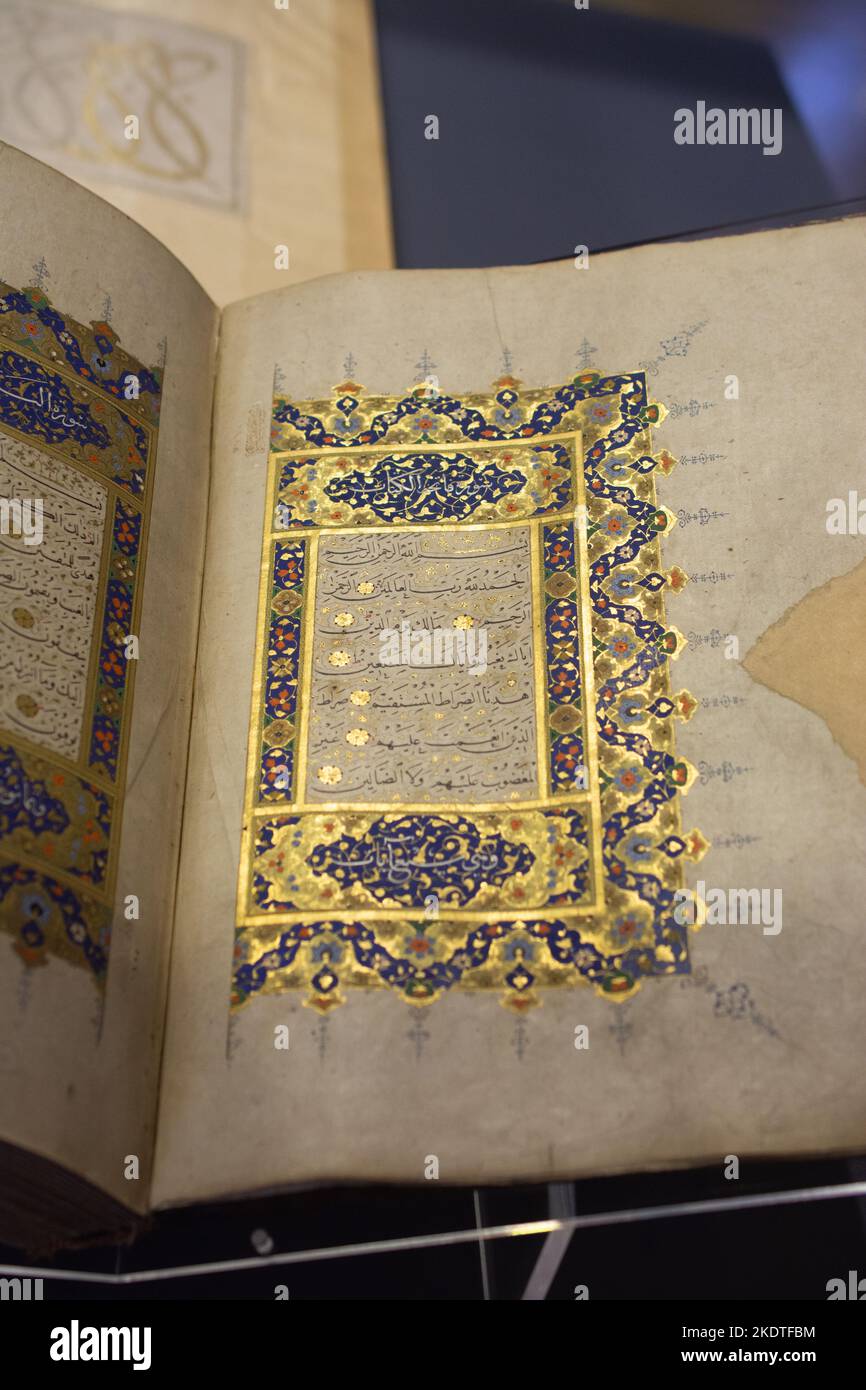 سورة فاتحة الكتاب
بسم الله الرحمن الرحيم
الحمد لله رب العالمين الرحمن
الرحيم مالك يوم الدين
اياك نعبد واياك نستعين ا
هدنا الصراط المستقيم صراط
الذين انعمت عليهم غير
المغضوب عليهم ولا الضالين
وهي سبع آيات
سورة الب
هدى للمتقين
بالغيب ويقيمون
alamy
Image ID: 2KDTFBM
www.alamy.com